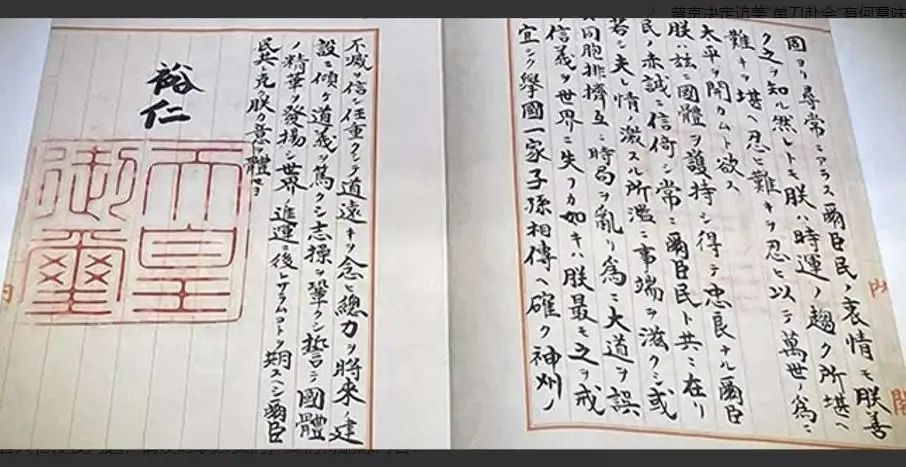 普京决定访美"单刀赴会"有何意味
固ヨリ尋常ニアラス爾臣民ノ衷情モ朕善
ク之ヲ知ル然レトモ朕ハ時運ノ趨ク所堪ヘ
難キヲ堪ヘ忍ヒ難キヲ忍ヒ以テ萬世ノ為ニ
太平ヲ開カムト欲ス
朕ハ茲ニ國體ヲ護持シ得テ忠良ナル爾臣
民ノ赤誠ニ信倚シ常ニ爾臣民ト共ニ在リ
若シ夫レ情ノ激スル所濫ニ事端ヲ滋クシ或
ハ同胞排擠互ニ時局ヲ亂リ為ニ大道ヲ誤
リ信義ヲ世界ニ失フカ如キハ朕最モ之ヲ戒
宜シク擧國一家子孫相傳ヘ確ク神州ノ
内閣
不滅ヲ信シ任重クシテ道遠キヲ念ヒ總力ヲ將來ノ建
設ニ傾ケ道義ヲ篤クシ志操ヲ鞏クシ誓テ國體
ノ精華ヲ發揚シ世界ノ進運ニ後レサラムコトヲ期スヘシ爾臣
民其レ克ク朕カ意ヲ體セヨ
裕仁
天皇
御璽
内